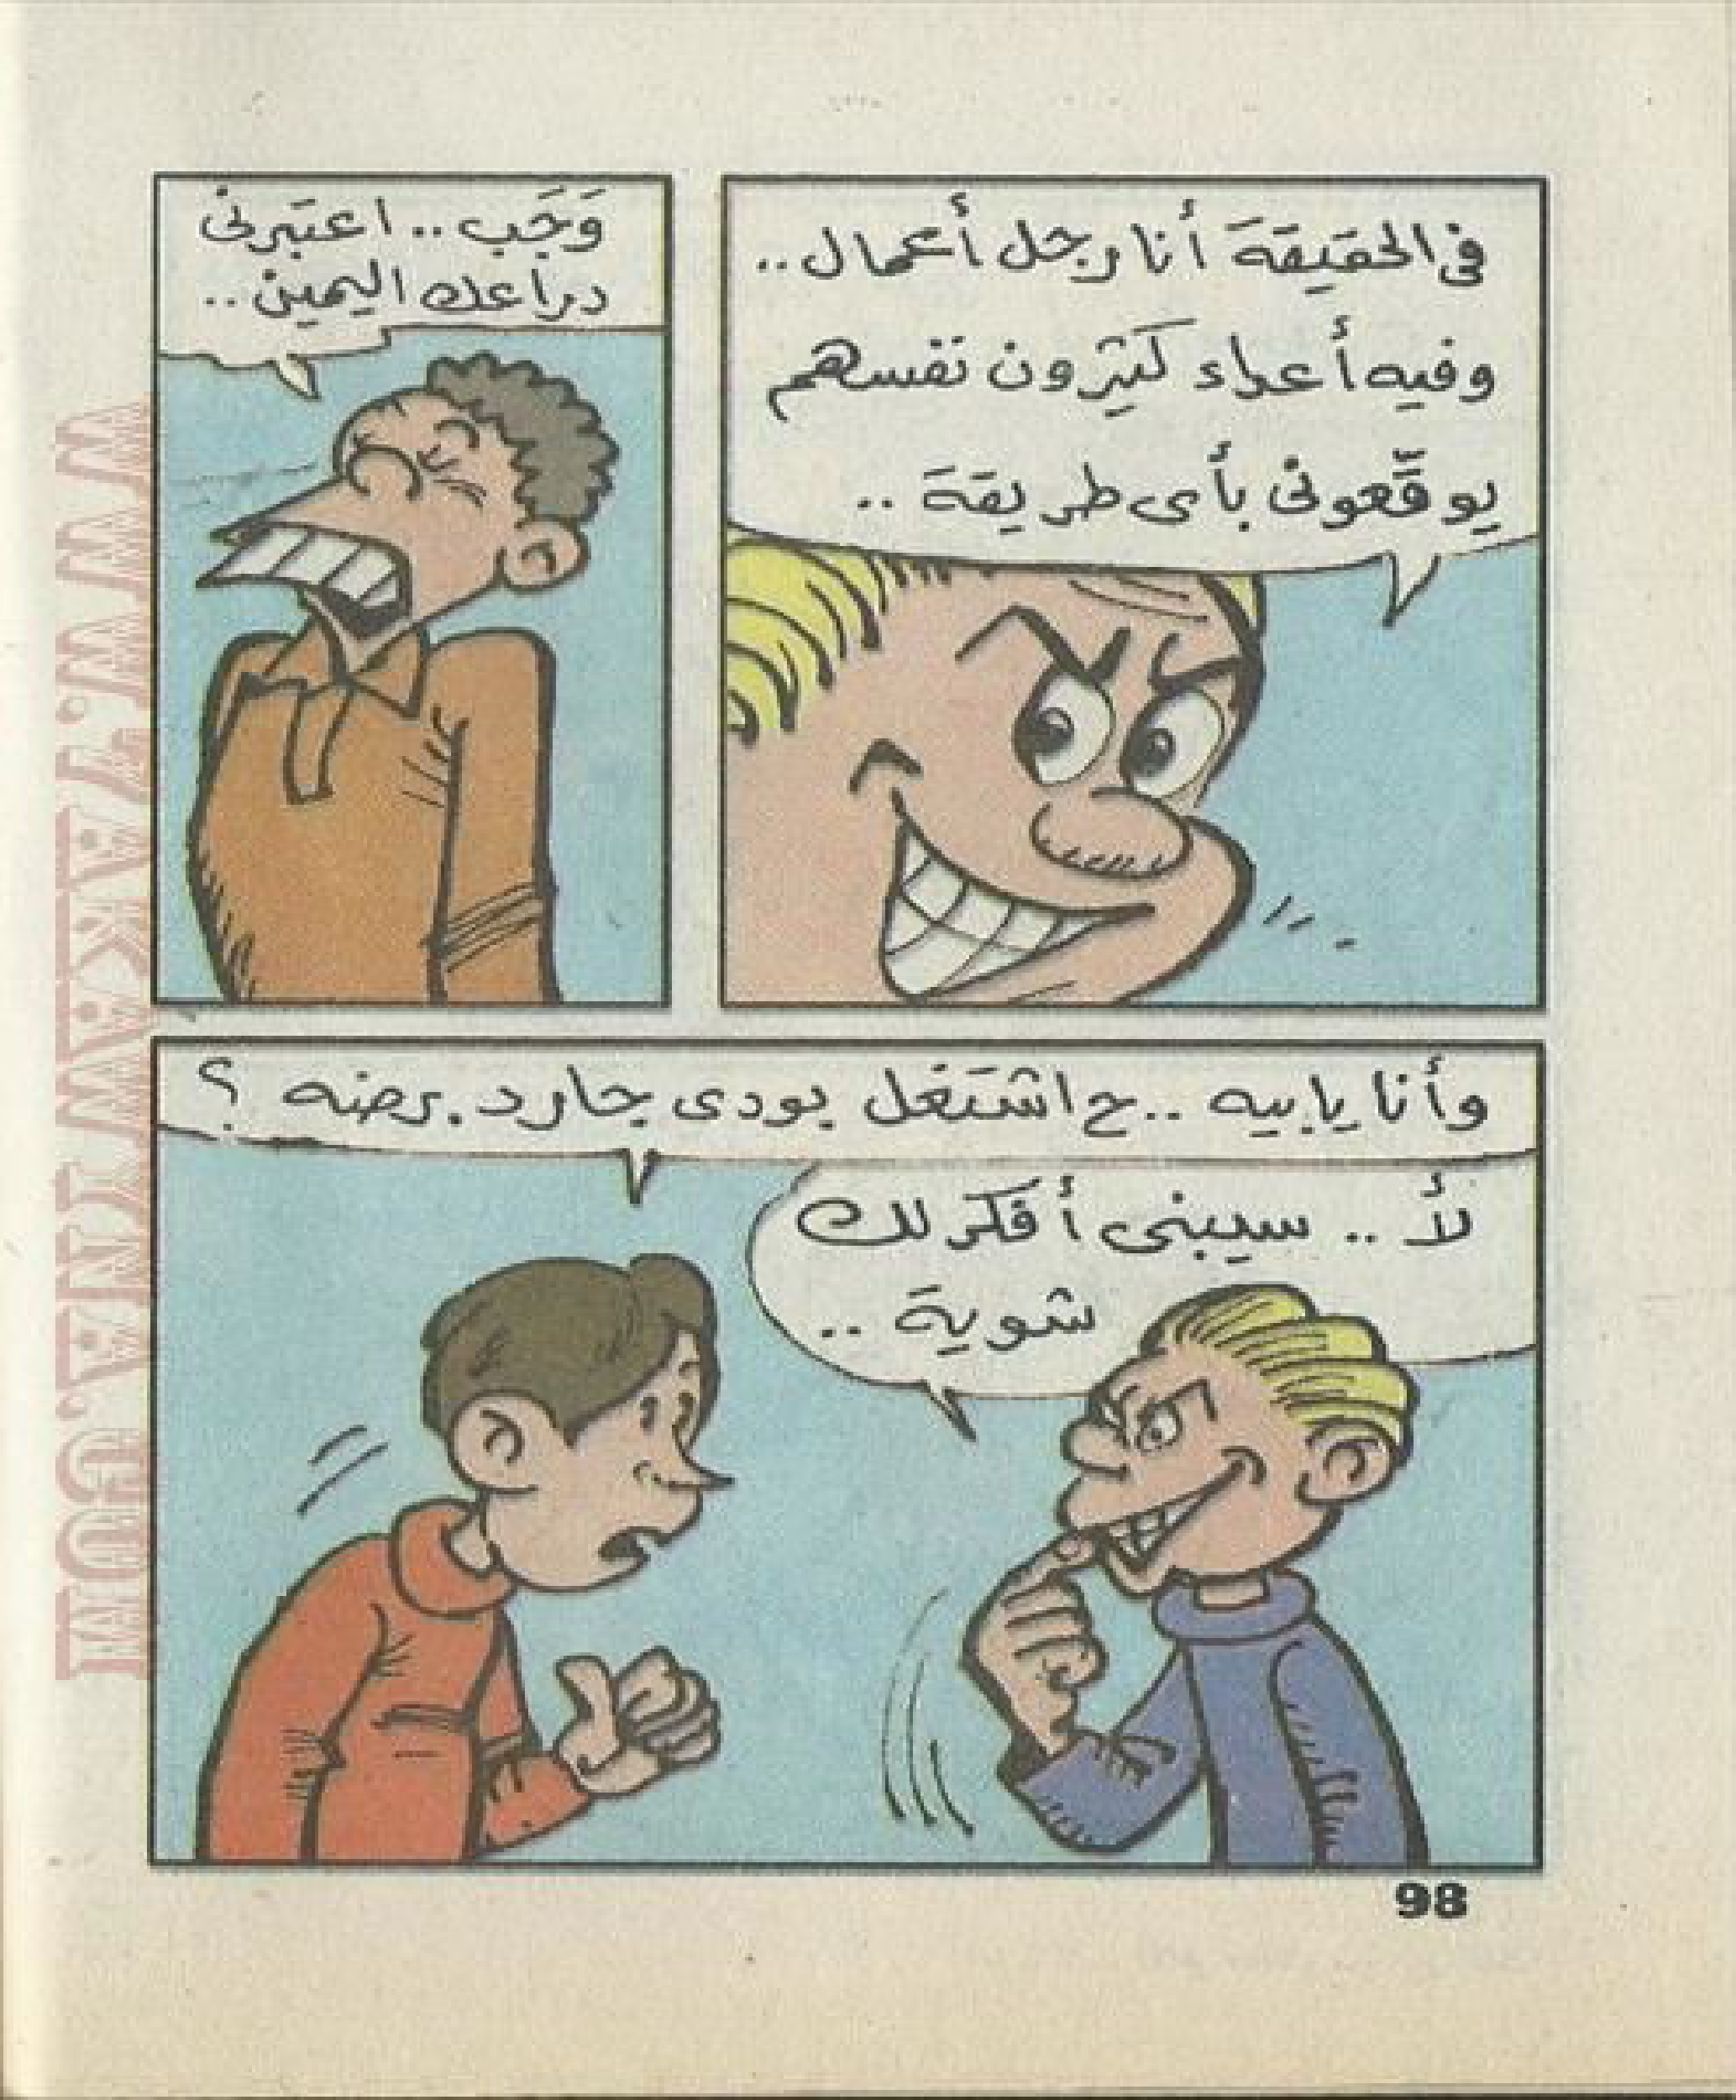 فى الحقيقة أنا رجل أعمال..
وفيه أعداء كتيرون نفسهم
يوقّعونى بأى طريقة ..
وَجَب .. اعتبرنى
دراعك اليمين ..
وأنا يابيه .. ح اشتغل بودى جارد برضه ؟
لأ .. سيبنى أفكر لك
شوية ..
98
WWW.TAKAWINAL.COM